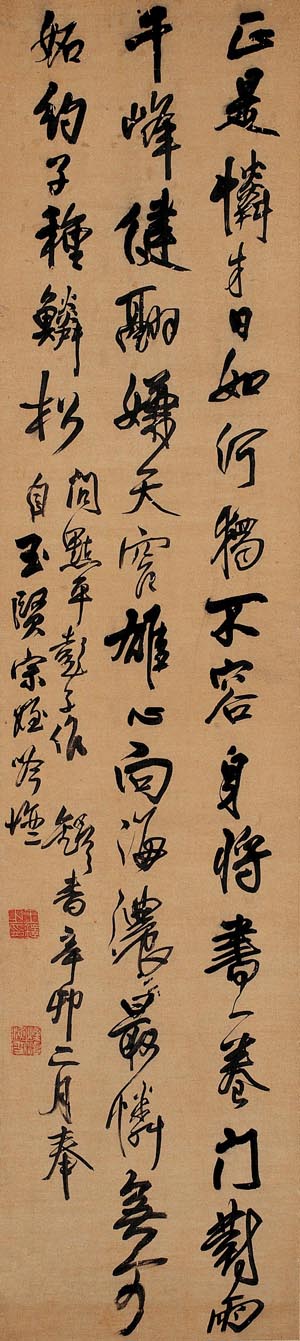 正是憐才日如何獨不容身將書一卷門對雨
千峰健翮嫌天窄雄心向海濃最憐無可
妬約子種鱗松
問平彭子作 鐸書辛卯二月奉
自玉賢宗姪吟壇